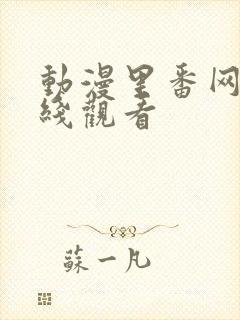 動漫里番网
綫觀看
蘇一凡